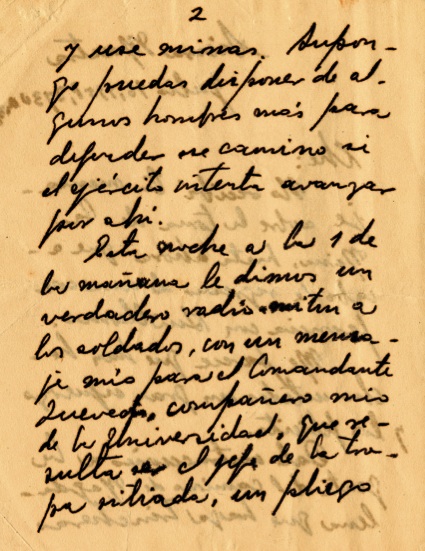 2
y use minas. Supon-
go puedas disponer de al-
gunos hombres más para
defender ese camino si
el ejército intenta avanzar
por ahí.
Esta noche a la 1 de
la mañana le dimos un
verdadero radio-mitin a
los soldados, con un mensa-
je mío para el Comandante
Quevedo, compañero mío
de la Universidad, que re-
sulta ser el jefe de la tro-
pa sitiada, un pliego